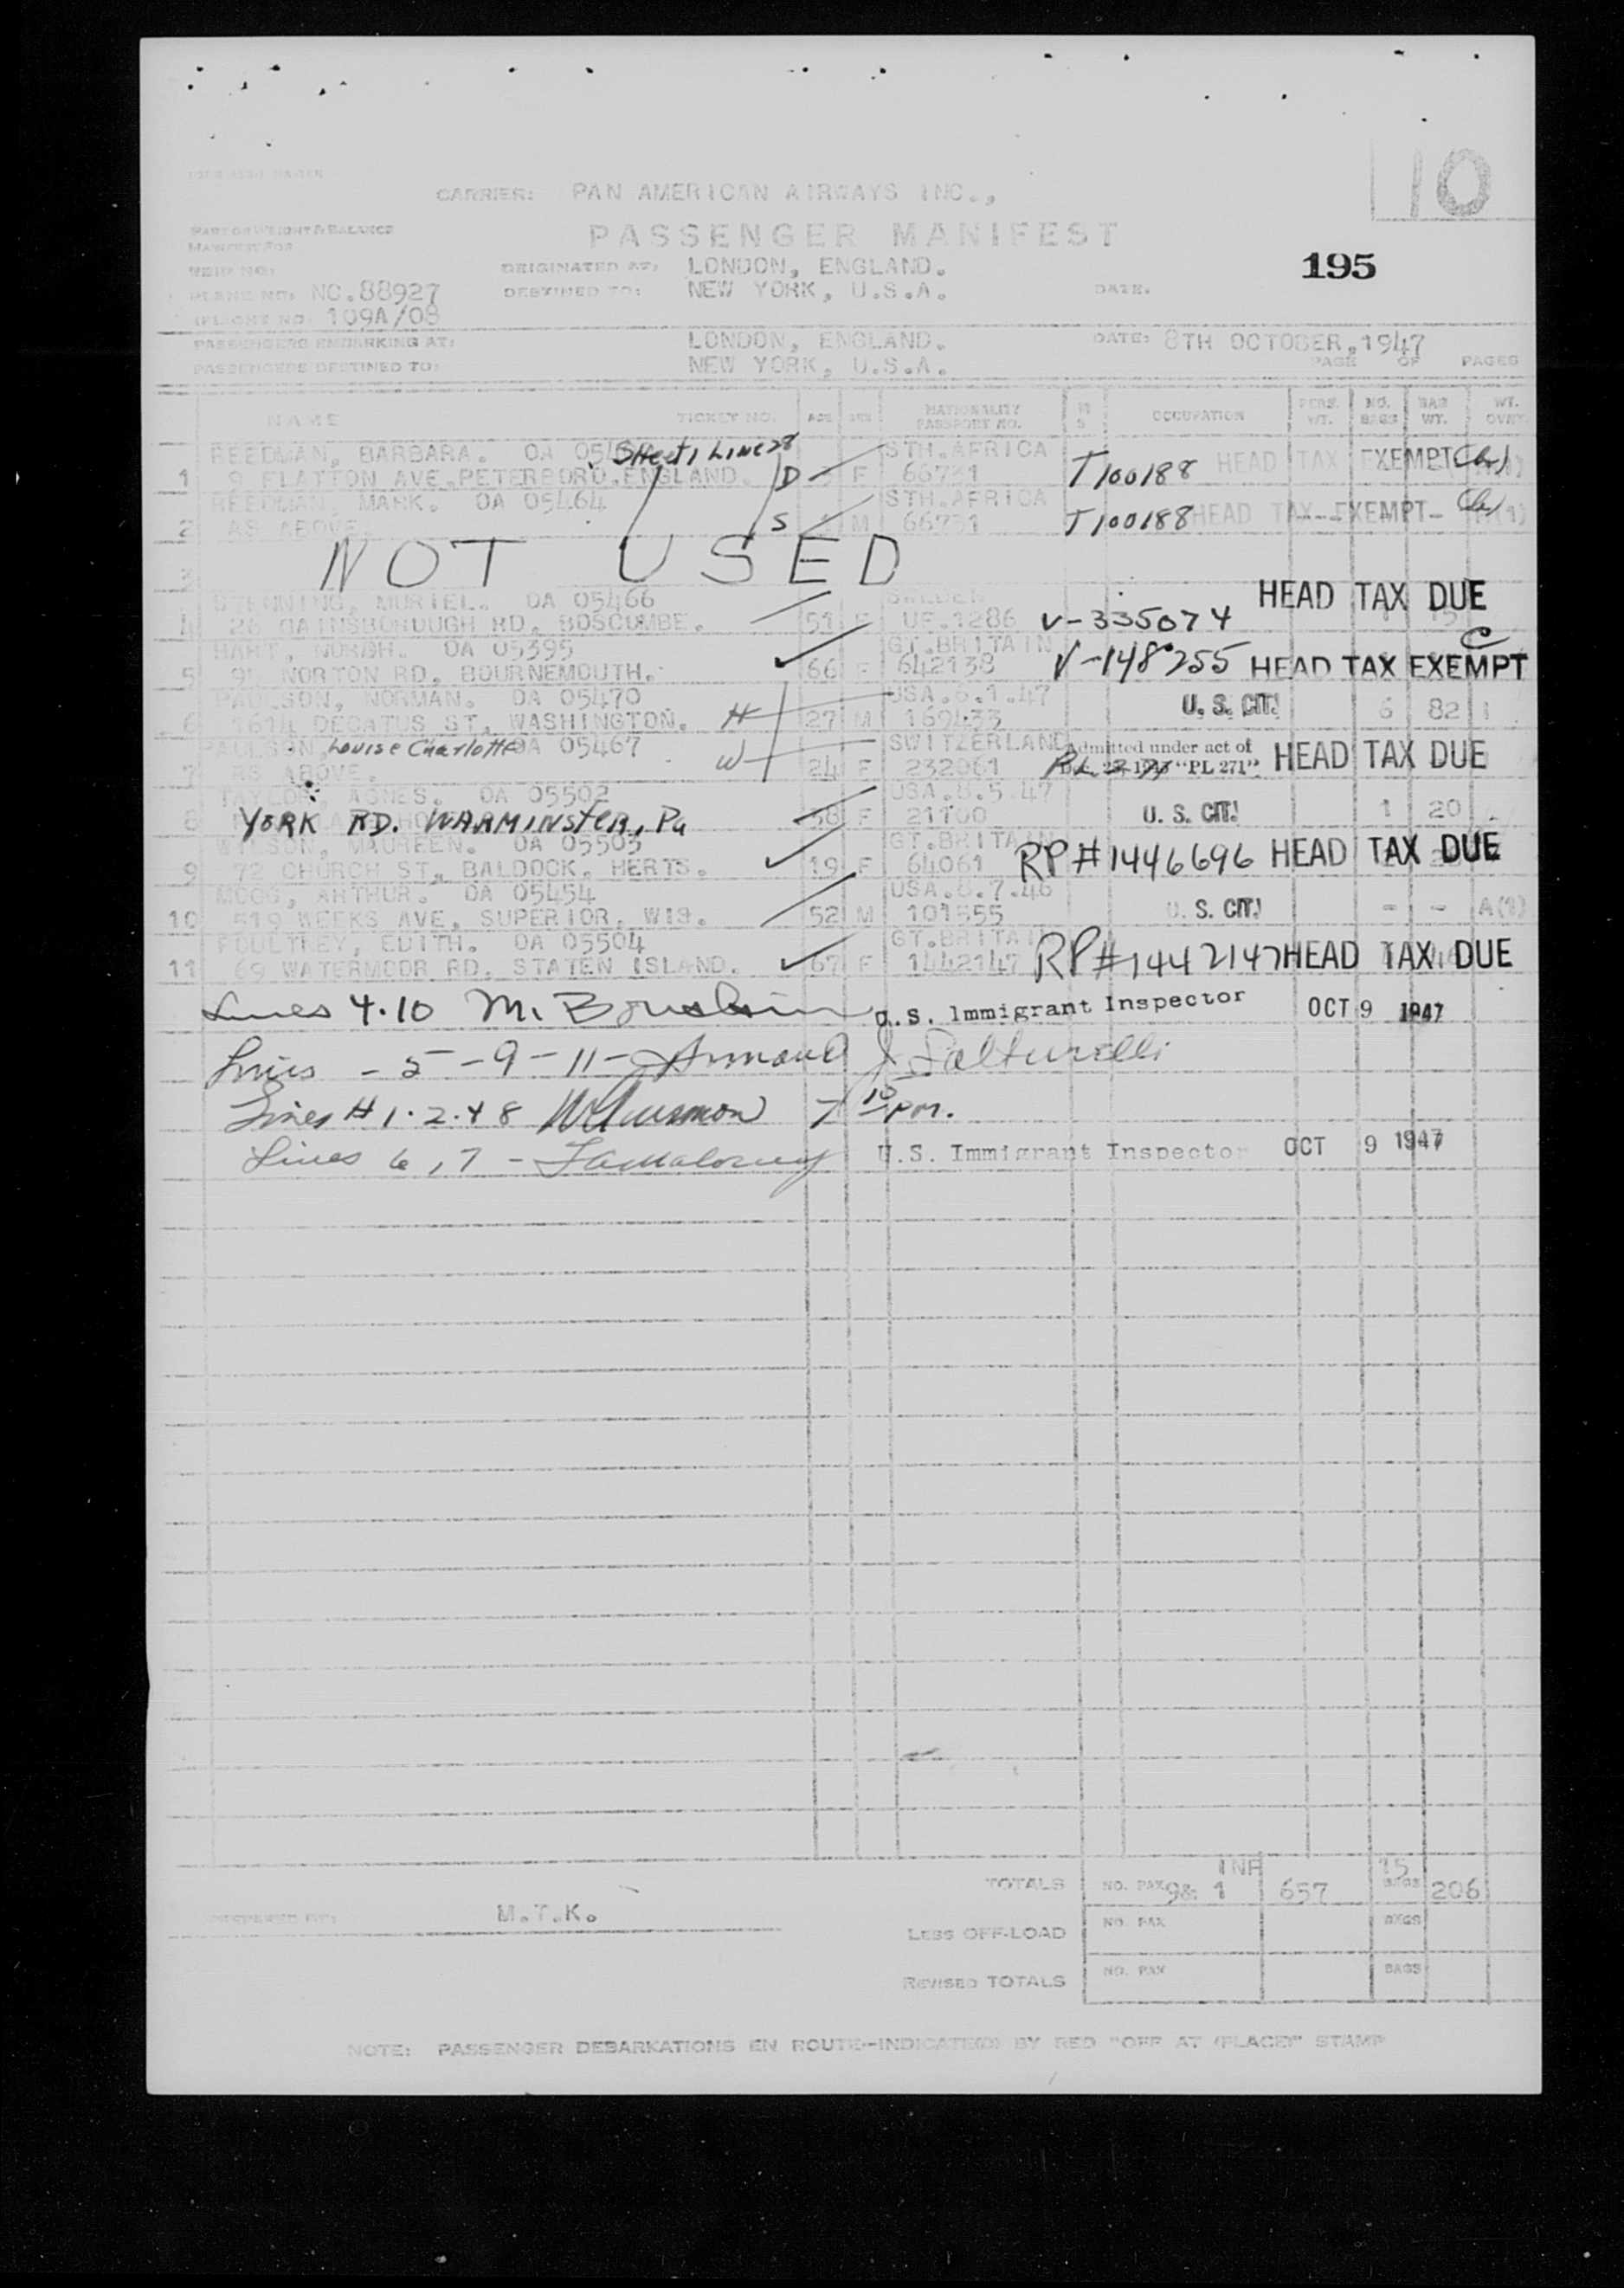 10
CARRIER: PAN AMERICAN AIRWAYS INC.,
PART OF WEIGHT & BALANCE
MANIFEST FOR
PASSENGER MANIFEST
195
ORIGINATED AT: LONDON, ENGLAND.
PLANE NO: NC.88927 DESTINED TO: NEW YORK, U.S.A. DATE.
FLIGHT NO 109A/08
PASSENGERS EMBARKING AT: LONDON, ENGLAND. DATE: 8TH OCTOBER, 1947
PASSENGERS DESTINED TO: NEW YORK, U.S.A. PAGE OF PAGES
NAME TICKET NO. AGE SEX NATIONALITY PASSPORT NO. OCCUPATION PERS. WT. NO. BAGS BAG WT. WT. OVRY.
REEDMAN, BARBARA. OA Sheet 1 Line 28 STH.AFRICA
1 9 FLATTON AVE.PETERBORO.ENGLAND. D F 66731 T100188 HEAD TAX EXEMPT
REEDMAN, MARK. OA 05464 STH.AFRICA
2 AS ABOVE. S M 66731 T100188 HEAD TAX EXEMPT
3 NOT USED
MURIEL. OA 05466 SWEDEN HEAD TAX DUE
4 26 GAINSBOROUGH RD, BOSCOMBE. 51 F UF.1286 V-335074
HART, NORAH. OA 05395 GT.BRITAIN C
5 NORTON RD, BOURNEMOUTH. 66 F 642138 V-148255 HEAD TAX EXEMPT
PAULSON, NORMAN. OA 05470 USA.6.1.47
6 1614 DECATUS ST, WASHINGTON. H 27 M 169433 U. S. CIT. 6 82 1
PAULSON Louise Charlotte OA 05467 SWITZERLAND Admitted under act of
7 AS ABOVE. W 24 F 232061 "PL 271" HEAD TAX DUE
TAYLOR, AGNES. OA 05502 USA.8.5.47
8 YORK RD. WARMINSTER, Pa 58 F 21100 U. S. CIT. 1 20
WILSON, MAUREEN. OA 05503 GT.BRITAIN
9 72 CHURCH ST, BALDOCK, HERTS. 19 F 64061 RP#1446696 HEAD TAX DUE
MOOG, ARTHUR. OA 05454 USA.8.7.46
10 519 WEEKS AVE, SUPERIOR, WIS. 52 M 101555 U. S. CIT. - - A(1)
POULTNEY, EDITH. OA 05504 GT.BRITAIN
11 69 WATERMOOR RD, STATEN ISLAND. 67 F 1442147 RP#1442147 HEAD TAX DUE
Lines 4.10 M. U.S. Immigrant Inspector OCT 9 1947
Lines - 5 - 9 - 11 - Armand J
Lines # 1.2.+8 7 15 pm.
Lines 6, 7 - U.S. Immigrant Inspector OCT 9 1947
TOTALS NO. PAX 9& 1 INF 657 15 BAGS 206
PREPARED BY: M.T.K.
LESS OFF-LOAD NO. PAX BAGS
REVISED TOTALS NO. PAX BAGS
NOTE: PASSENGER DEBARKATIONS EN ROUTE--INDICATED BY RED "OFF AT (PLACE)" STAMP